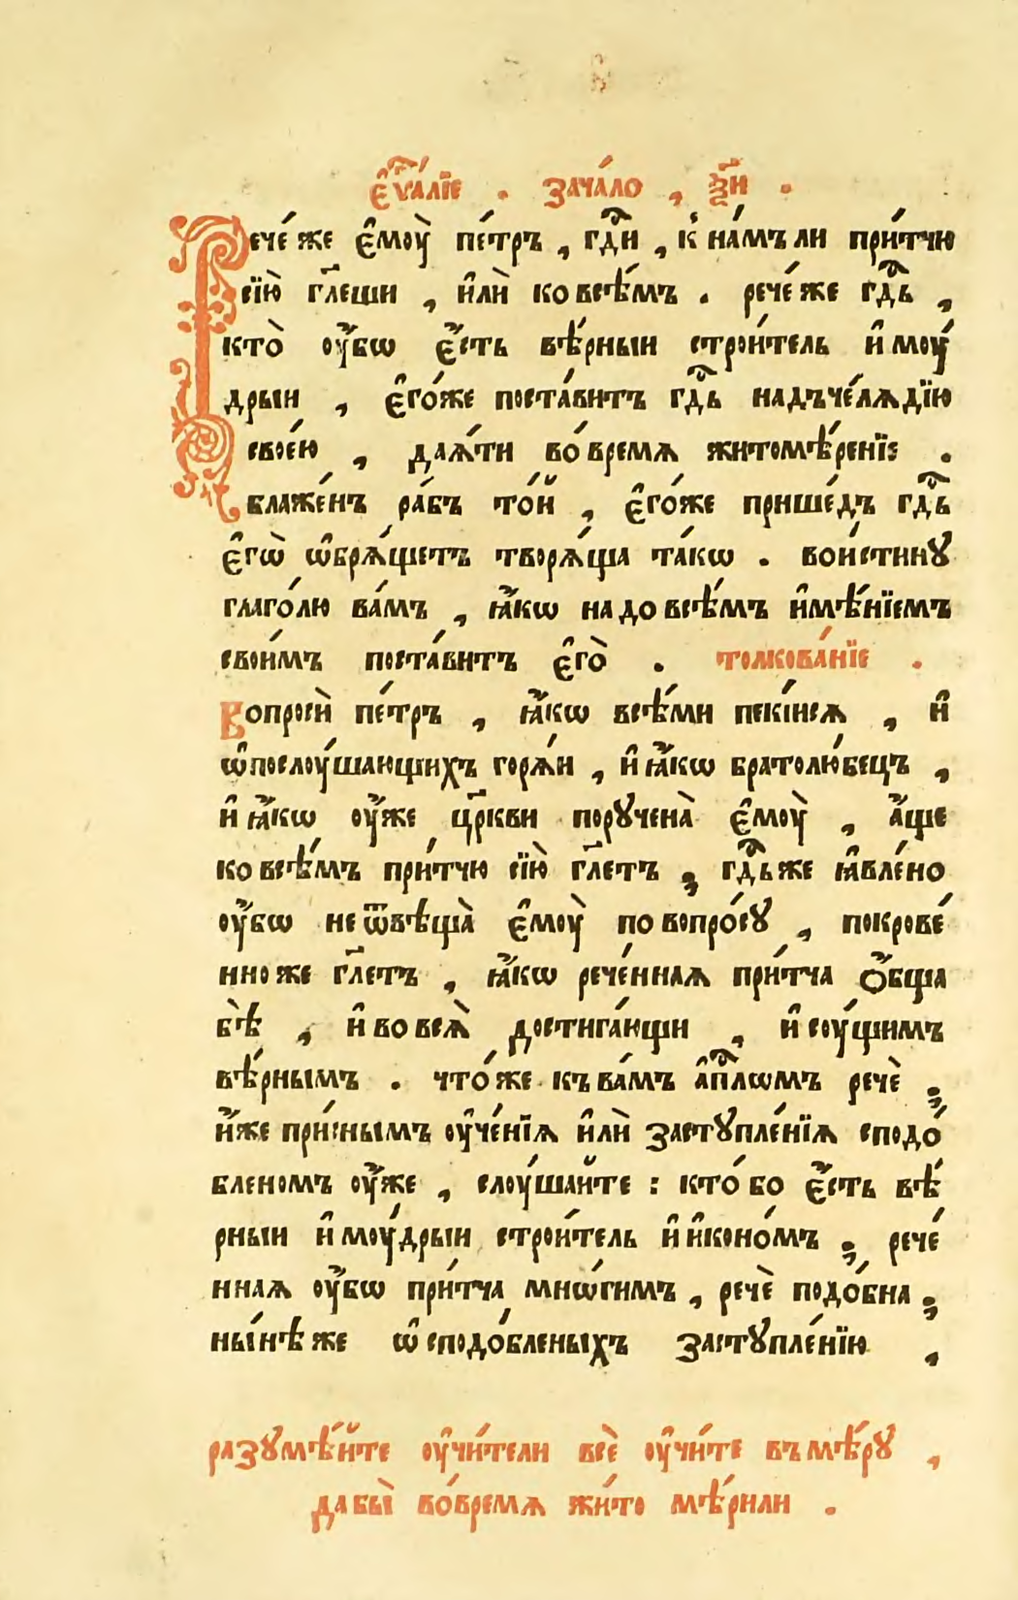 є҆ѵⷢ҇аліе . зача́ло , ѯ҃и .
Рече́ же є҆моу̀ пе́тръ , гдⷭ҇и , к̾ на́мъ ли при́тчю
сїю̀ гл҃еши , и҆лѝ ко всѣ́мъ . рече́ же гдⷭ҇ь ,
кто̀ оу҆́бѡ є҆́сть вѣ́рныи строи́тель и҆ моу́
дрыи , є҆го́же поста́витъ гдⷭ҇ь надъ че́лѧдїю
своє́ю , даѧ́ти во́ время житомѣ́реніе .
блаже́нъ ра́бъ то́й , є҆го́же прише́дъ гдⷭ҇ь
є҆гѡ̀ ѡ҆брѧ́щетъ творѧ́ща та́кѡ . вои́стинꙋ
глаго́лю ва́мъ , ꙗ҆́кѡ надо всѣ́мъ и҆мѣ́нїемъ
свои́мъ поста́витъ є҆го̀ . толкова́нїе .
Вопросѝ пе́тръ , ꙗ҆́кѡ всѣ́ми пекі́исѧ , и҆
ѡ҆ послоу́шающихъ горѧ́и , и҆ ꙗ҆́кѡ братолю́бецъ ,
и҆ ꙗ҆́кѡ оу҆́же цр҃кви порꙋчена̀ є҆моу̀ , а҆́ще
ко всѣ́мъ при́тчю сїю̀ гл҃етъ ; гдⷭ҇ь же ꙗ҆вле́но
оу҆́бѡ не ѿвѣща̀ є҆моу̀ по вопро́сꙋ , покрове́
нно же гл҃етъ , ꙗ҆́кѡ рече́нная при́тча ѻ҆́бща
бѣ̀ , и҆ во всѧ̀ достига́ющи , и҆ соу́щимъ
вѣ́рнымъ . что́ же къ ва́мъ а҆пⷭ҇лѡмъ речѐ ;
и҆́же при́снымъ оу҆че́нїѧ и҆лѝ застꙋпле́нїѧ сподо́
бленомъ оу҆́же , слоу́шайте : кто́ бо є҆́сть вѣ́
рныи и҆ моу́дрыи строи́тель и҆ и҆коно́мъ ; рече́
ннаѧ оу҆́бѡ при́тча мнѡ́гимъ , речѐ подо́бна ;
ны́нѣ же ѡ҆ сподо́бленыхъ застꙋпле́нїю ,
разꙋмѣ́йте оу҆чи́тели всѐ оу҆чи́те въ мѣ́рꙋ ,
да бы̀ во́время жи́то мѣ́рили .